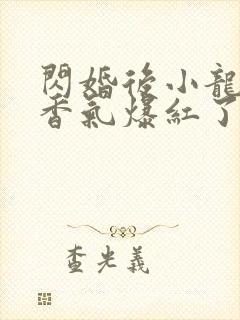 閃婚後小龍
香氣爆紅了
查光義